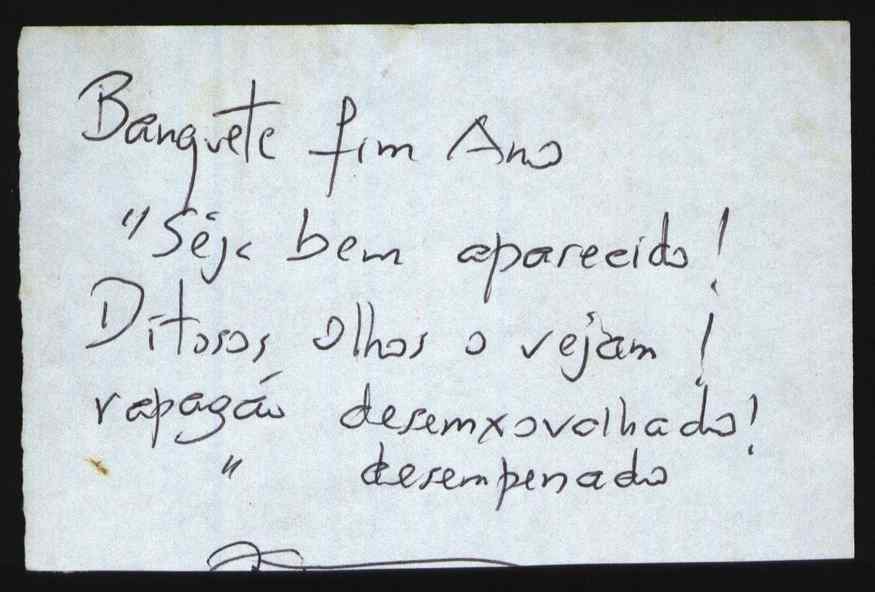 Banquete fim Ano
"Seja bem aparecido!
Ditosos olhos o vejam!
rapagão desemxovalhado!
" desempenado